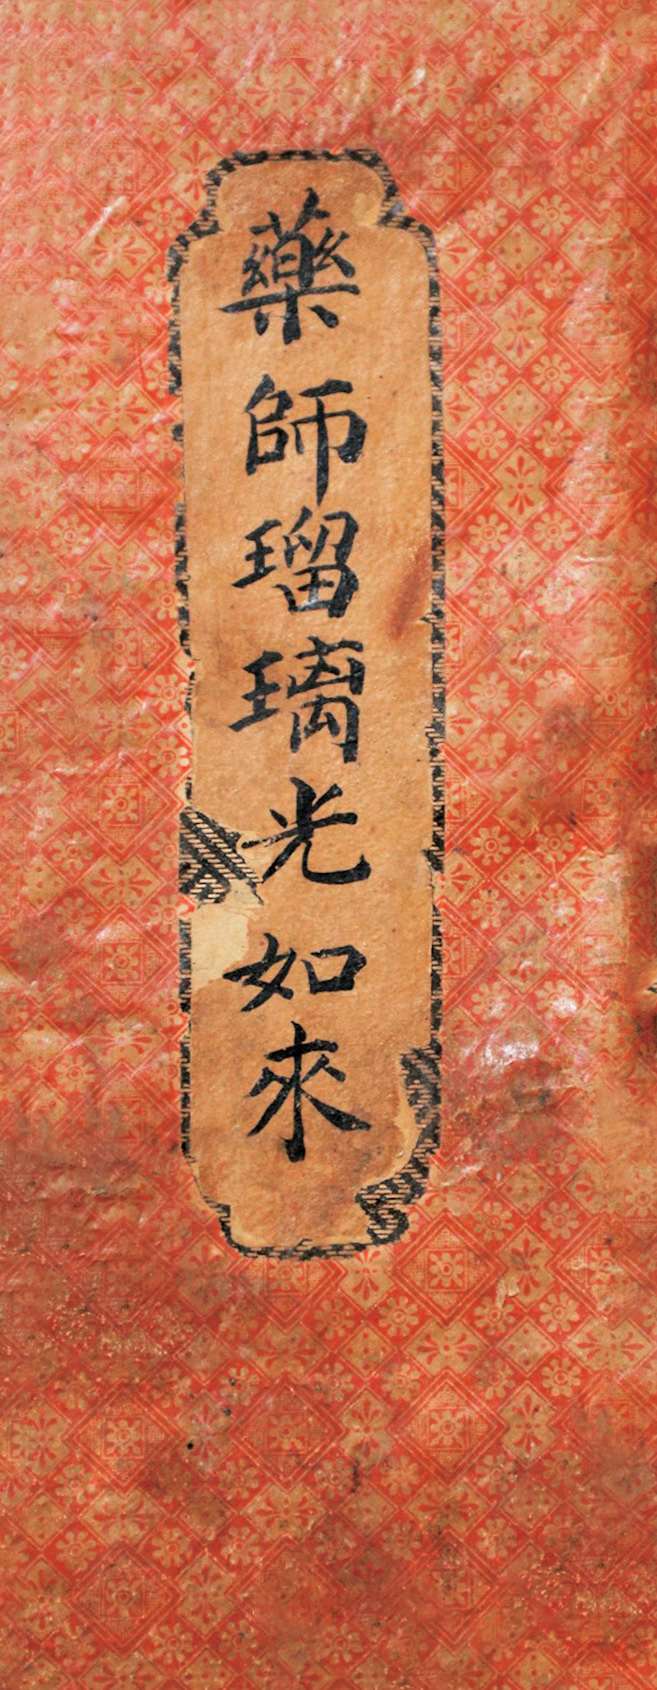 藥師瑠璃光如來